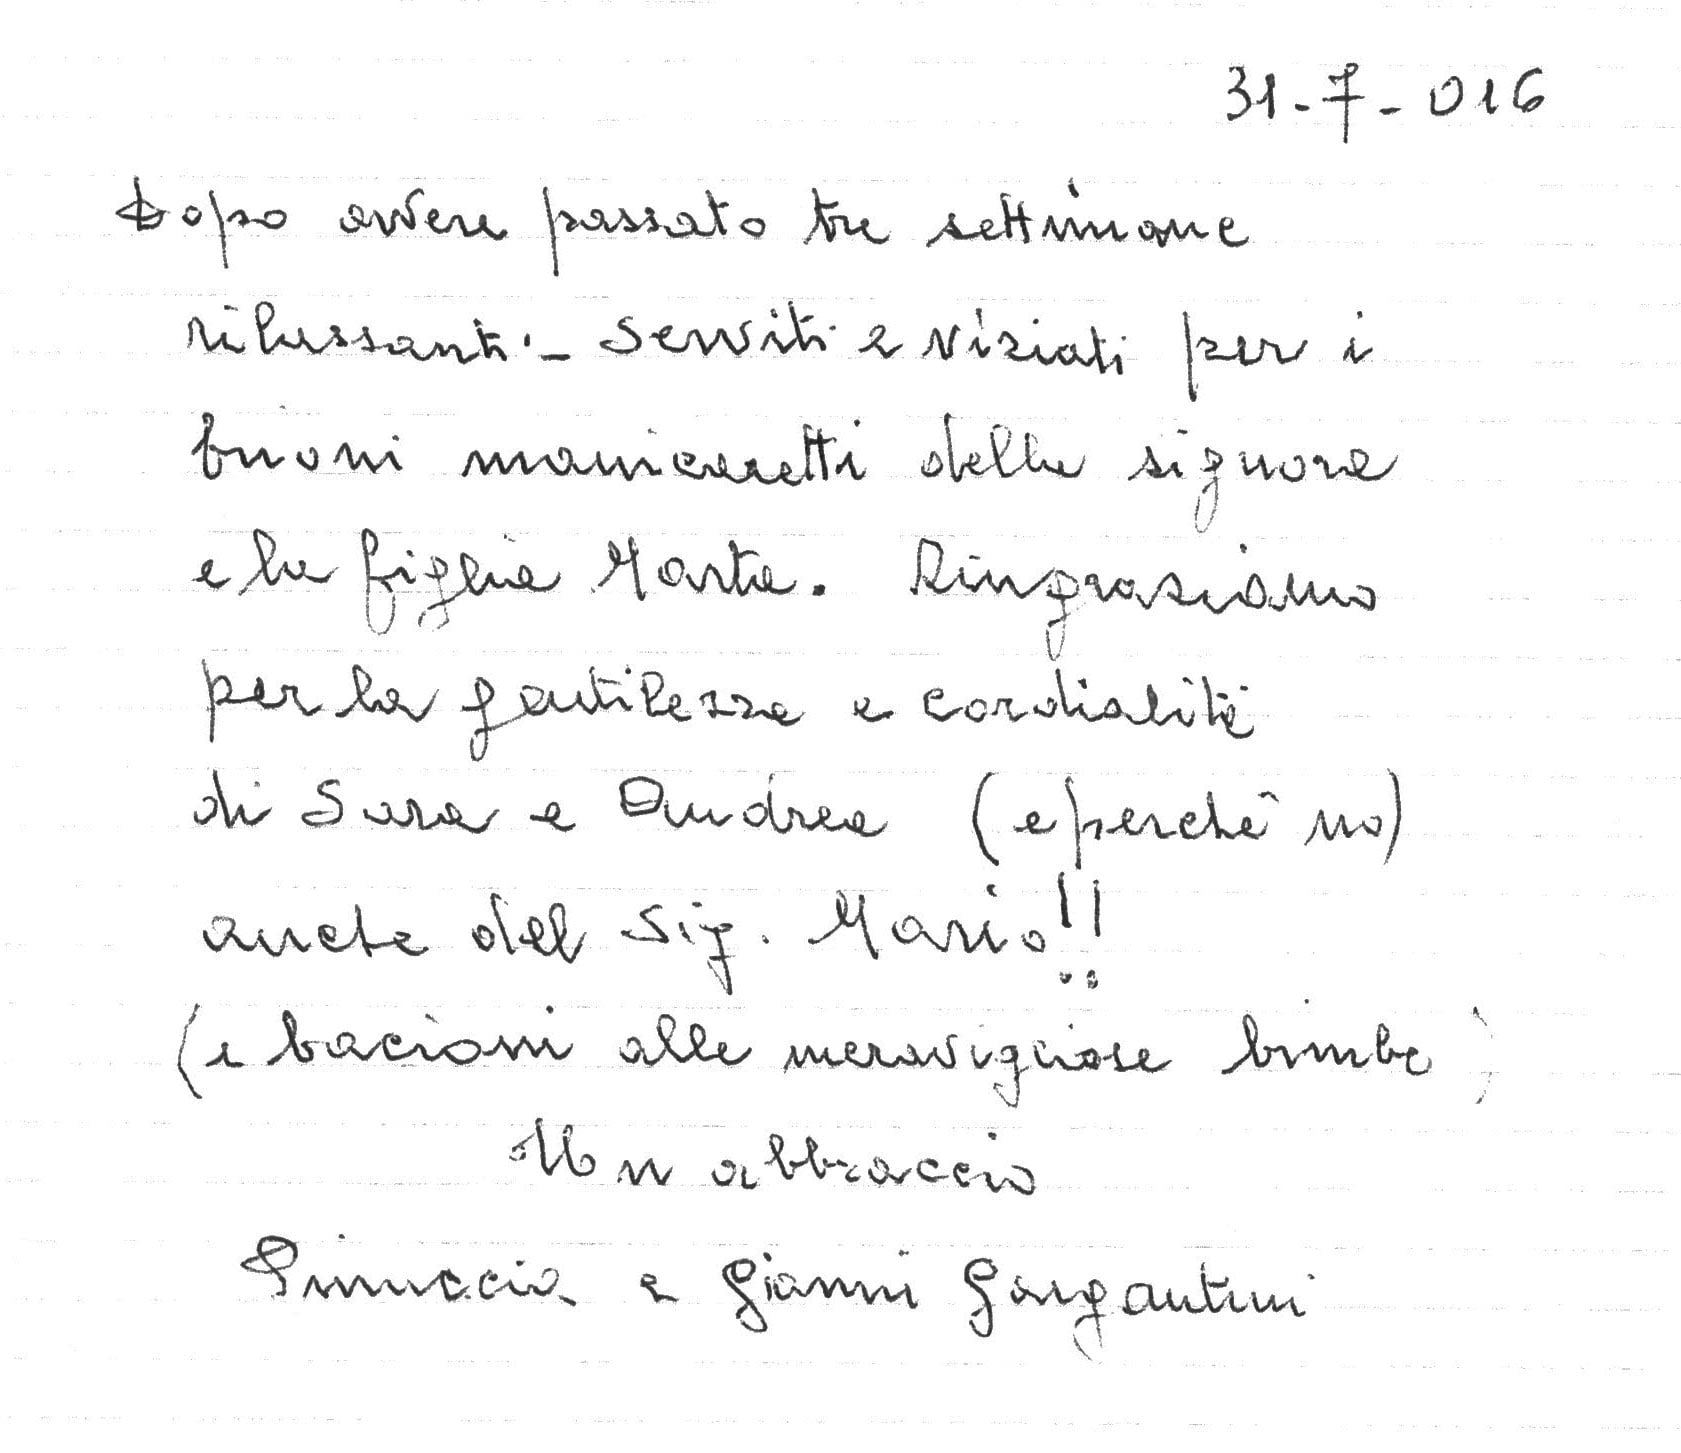 31-7-016
Dopo avvere passato tre settimane
rilassanti - Serviti e viziati per i
buoni manicaretti della signora
e la figlia Marta. Ringraziamo
per la gentilezza e cordialità
di Sara e Andrea (e perchè no)
anche del Sig. Mario!!
(e bacioni alle meravigliose bimbe)
Un abbraccio
Pinuccia e Gianni Gargantini